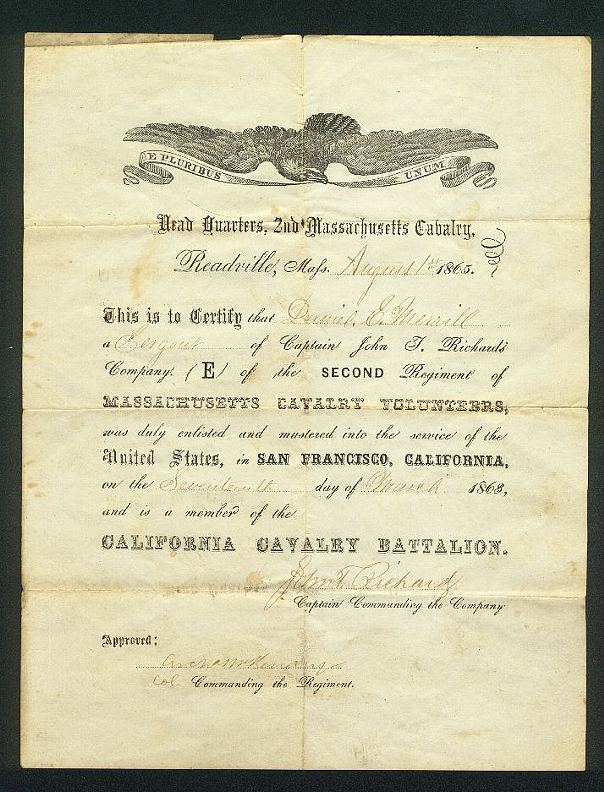 E PLURIBUS UNUM
Head Quarters, 2nd Massachusetts Cavalry,
Readville, Mass. August 1st 1865.
This is to Certify that Daniel E. Merrill
a Sergeant of Captain John T. Richards
Company, (E) of the SECOND Regiment of
MASSACHUSETTS CAVALRY VOLUNTEERS,
was duly enlisted and mustered into the service of the
United States, in SAN FRANCISCO, CALIFORNIA,
on the Seventeenth day of March 1863,
and is a member of the
CALIFORNIA CAVALRY BATTALION.
John T. Richards
Captain Commanding the Company
Approved:
Col Commanding the Regiment.